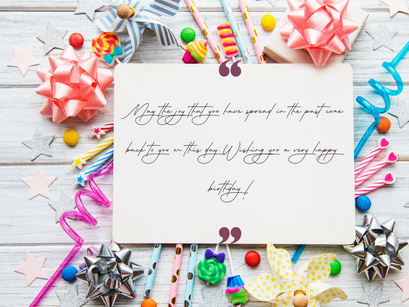 May the joy that you have spread in the past come
back to you on this day. Wishing you a very happy
birthday !